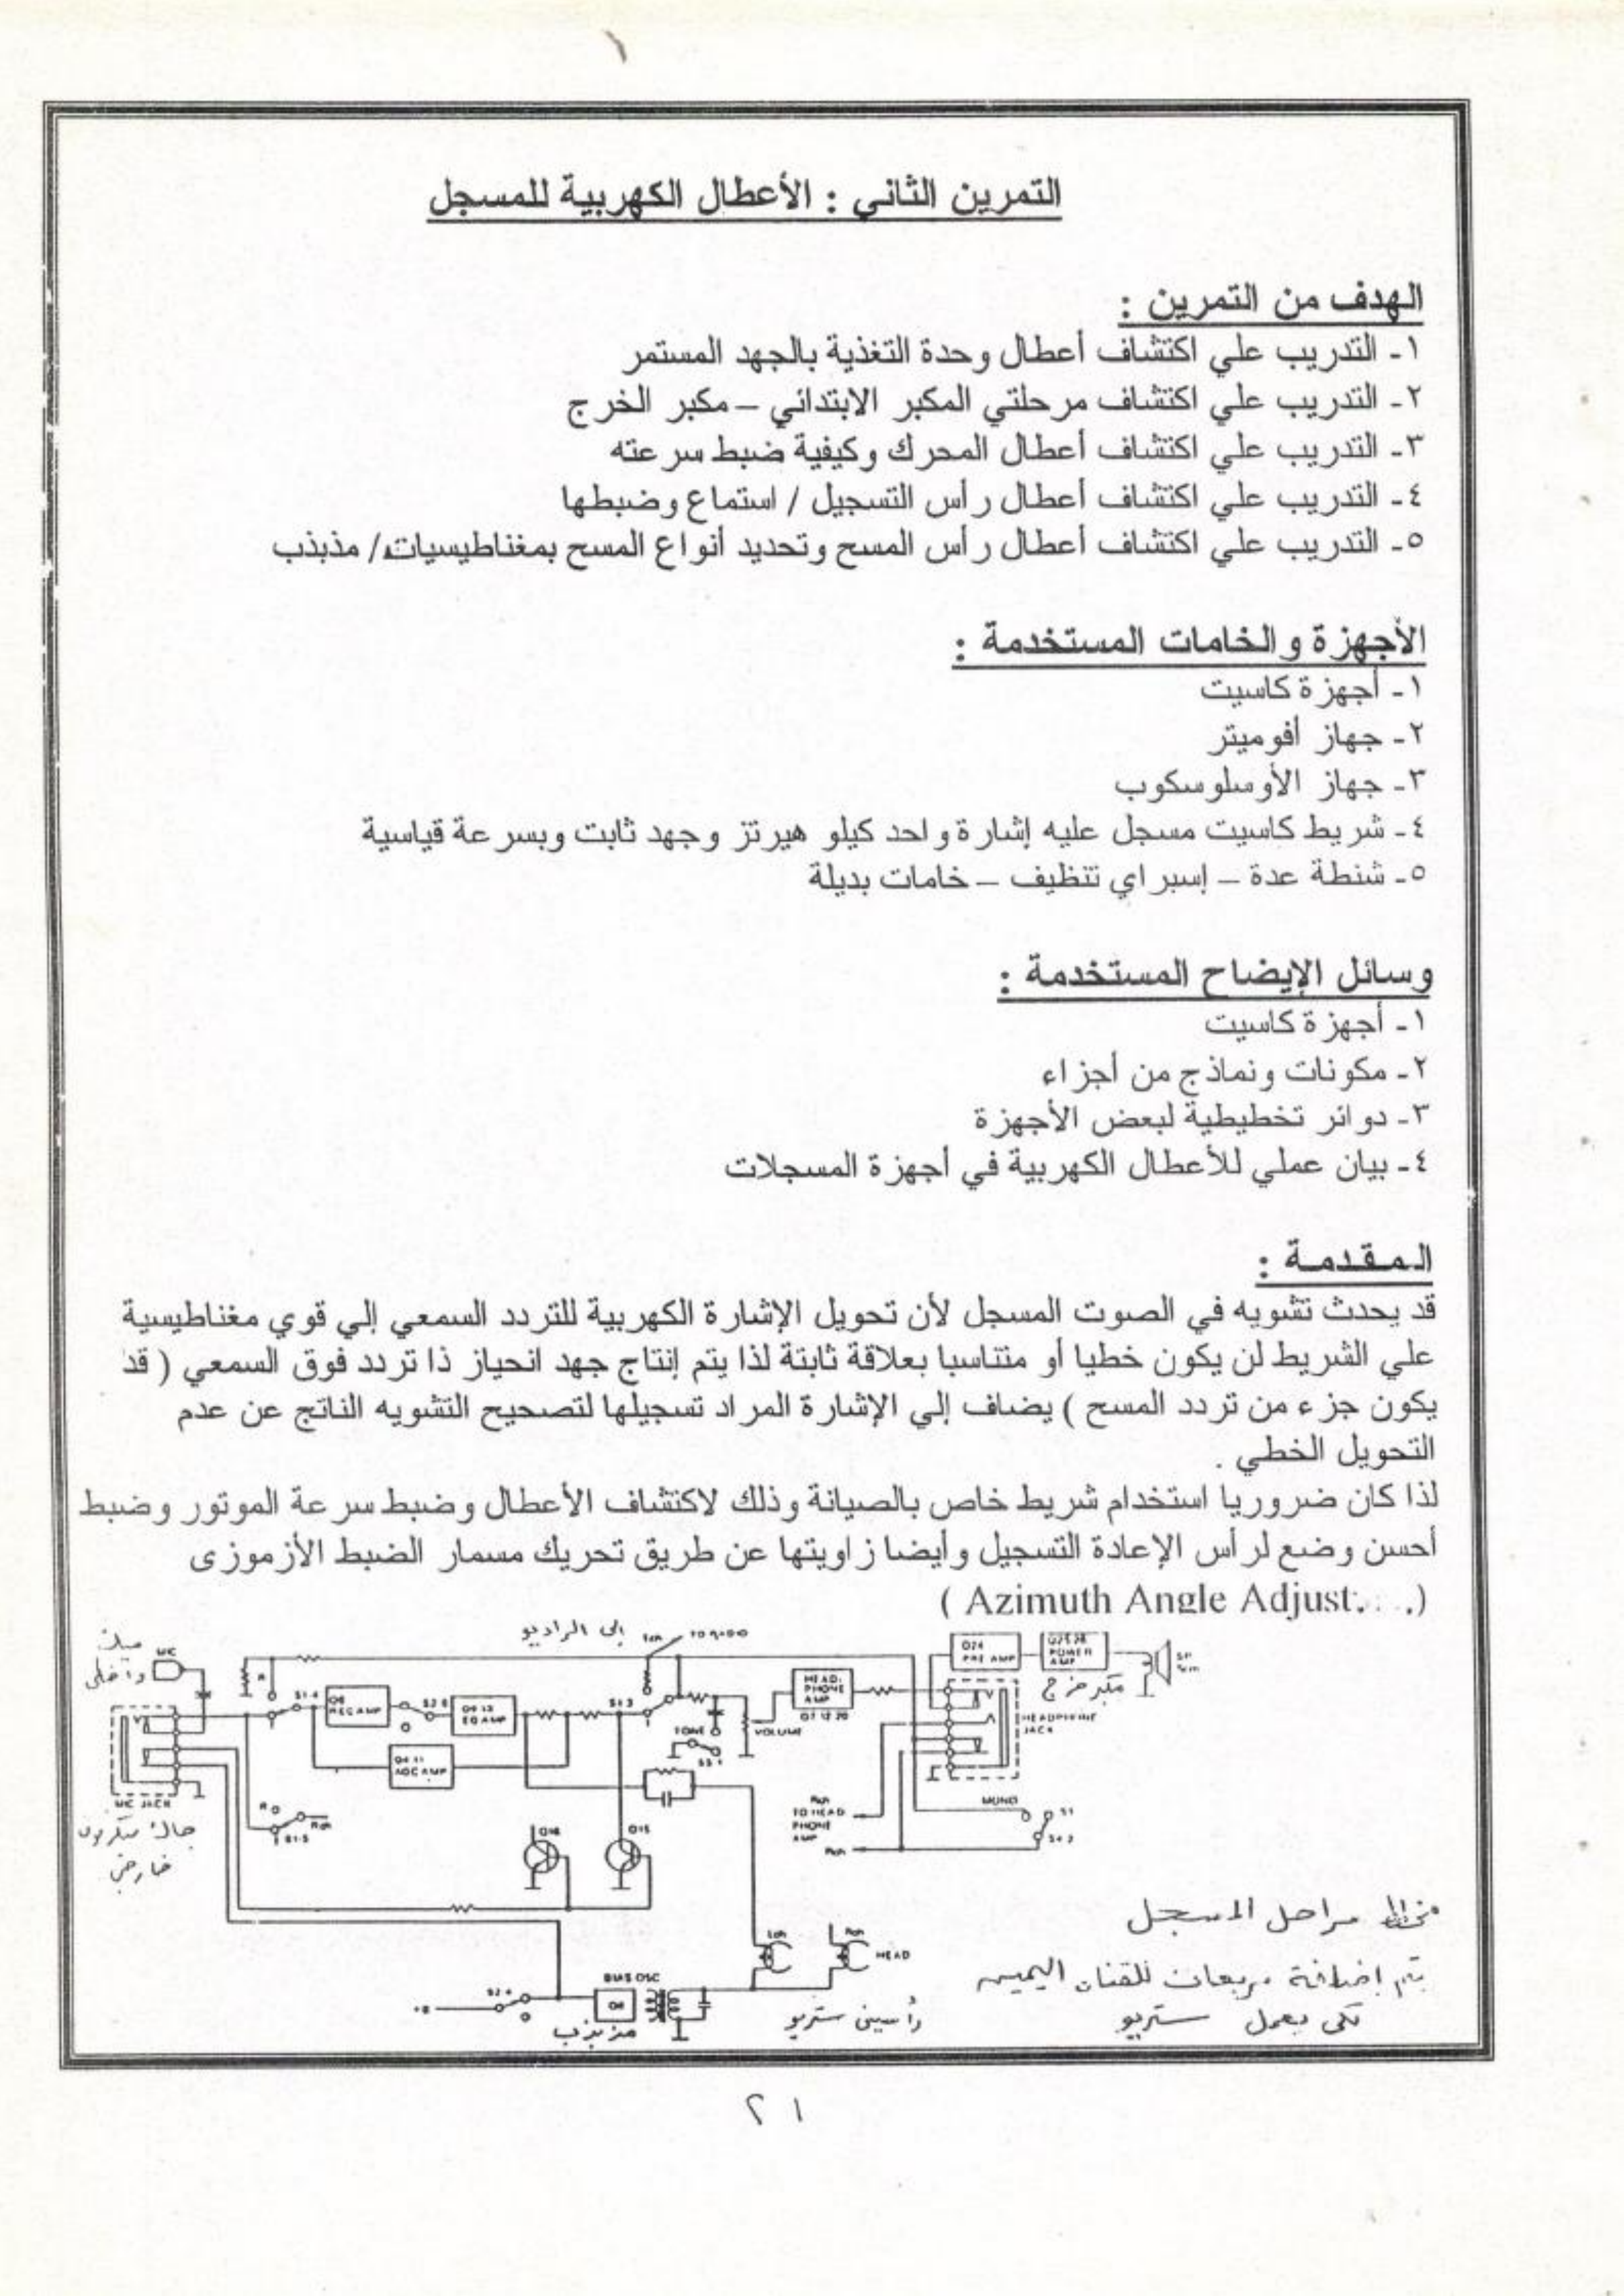 التمرين الثاني : الأعطال الكهربية للمسجل
الهدف من التمرين :
١- التدريب علي اكتشاف أعطال وحدة التغذية بالجهد المستمر
٢- التدريب علي اكتشاف مرحلتي المكبر الابتدائي – مكبر الخرج
٣- التدريب علي اكتشاف أعطال المحرك وكيفية ضبط سرعته
٤- التدريب علي اكتشاف أعطال رأس التسجيل / استماع وضبطها
٥- التدريب علي اكتشاف أعطال رأس المسح وتحديد أنواع المسح بمغناطيسيات/ مذبذب
الأجهزة والخامات المستخدمة :
١- أجهزة كاسيت
٢- جهاز أفوميتر
٣- جهاز الأوسلوسكوب
٤- شريط كاسيت مسجل عليه إشارة واحد كيلو هيرتز وجهد ثابت وبسرعة قياسية
٥- شنطة عدة – إسبراي تنظيف – خامات بديلة
وسائل الإيضاح المستخدمة :
١- أجهزة كاسيت
٢- مكونات ونماذج من أجزاء
٣- دوائر تخطيطية لبعض الأجهزة
٤- بيان عملي للأعطال الكهربية في أجهزة المسجلات
المقدمة :
قد يحدث تشويه في الصوت المسجل لأن تحويل الإشارة الكهربية للتردد السمعي إلي قوي مغناطيسية
علي الشريط لن يكون خطيا أو متناسبا بعلاقة ثابتة لذا يتم إنتاج جهد انحياز ذا تردد فوق السمعي ( قد
يكون جزء من تردد المسح ) يضاف إلي الإشارة المراد تسجيلها لتصحيح التشويه الناتج عن عدم
التحويل الخطي .
لذا كان ضروريا استخدام شريط خاص بالصيانة وذلك لاكتشاف الأعطال وضبط سرعة الموتور وضبط
أحسن وضع لرأس الإعادة التسجيل وأيضا زاويتها عن طريق تحريك مسمار الضبط الأزموزى
( Azimuth Angle Adjust. . .)
إلى الراديو
داخلى
MIC
Lch
TO RADIO
Q24
PRE AMP
POWER
AMP
SP
مكبر خرج
HEAD-
PHONE
AMP
S1-4
REC AMP
EQ AMP
S1-3
TONE
VOLUME
HEADPHONE
JACK
ADC AMP
MIC JACK
جاك ميكرفون
خارجى
Rch
S1-5
Q16
Q15
Rch
TO HEAD
PHONE
AMP
Rch
MONO
S1
Lch
Rch
HEAD
BIAS OSC
+B
مذبذب
رأسين ستريو
مخطط مراحل المسجل
يتم إضافة مربعات للقناة اليمين
لكى يعمل ستريو
٢١